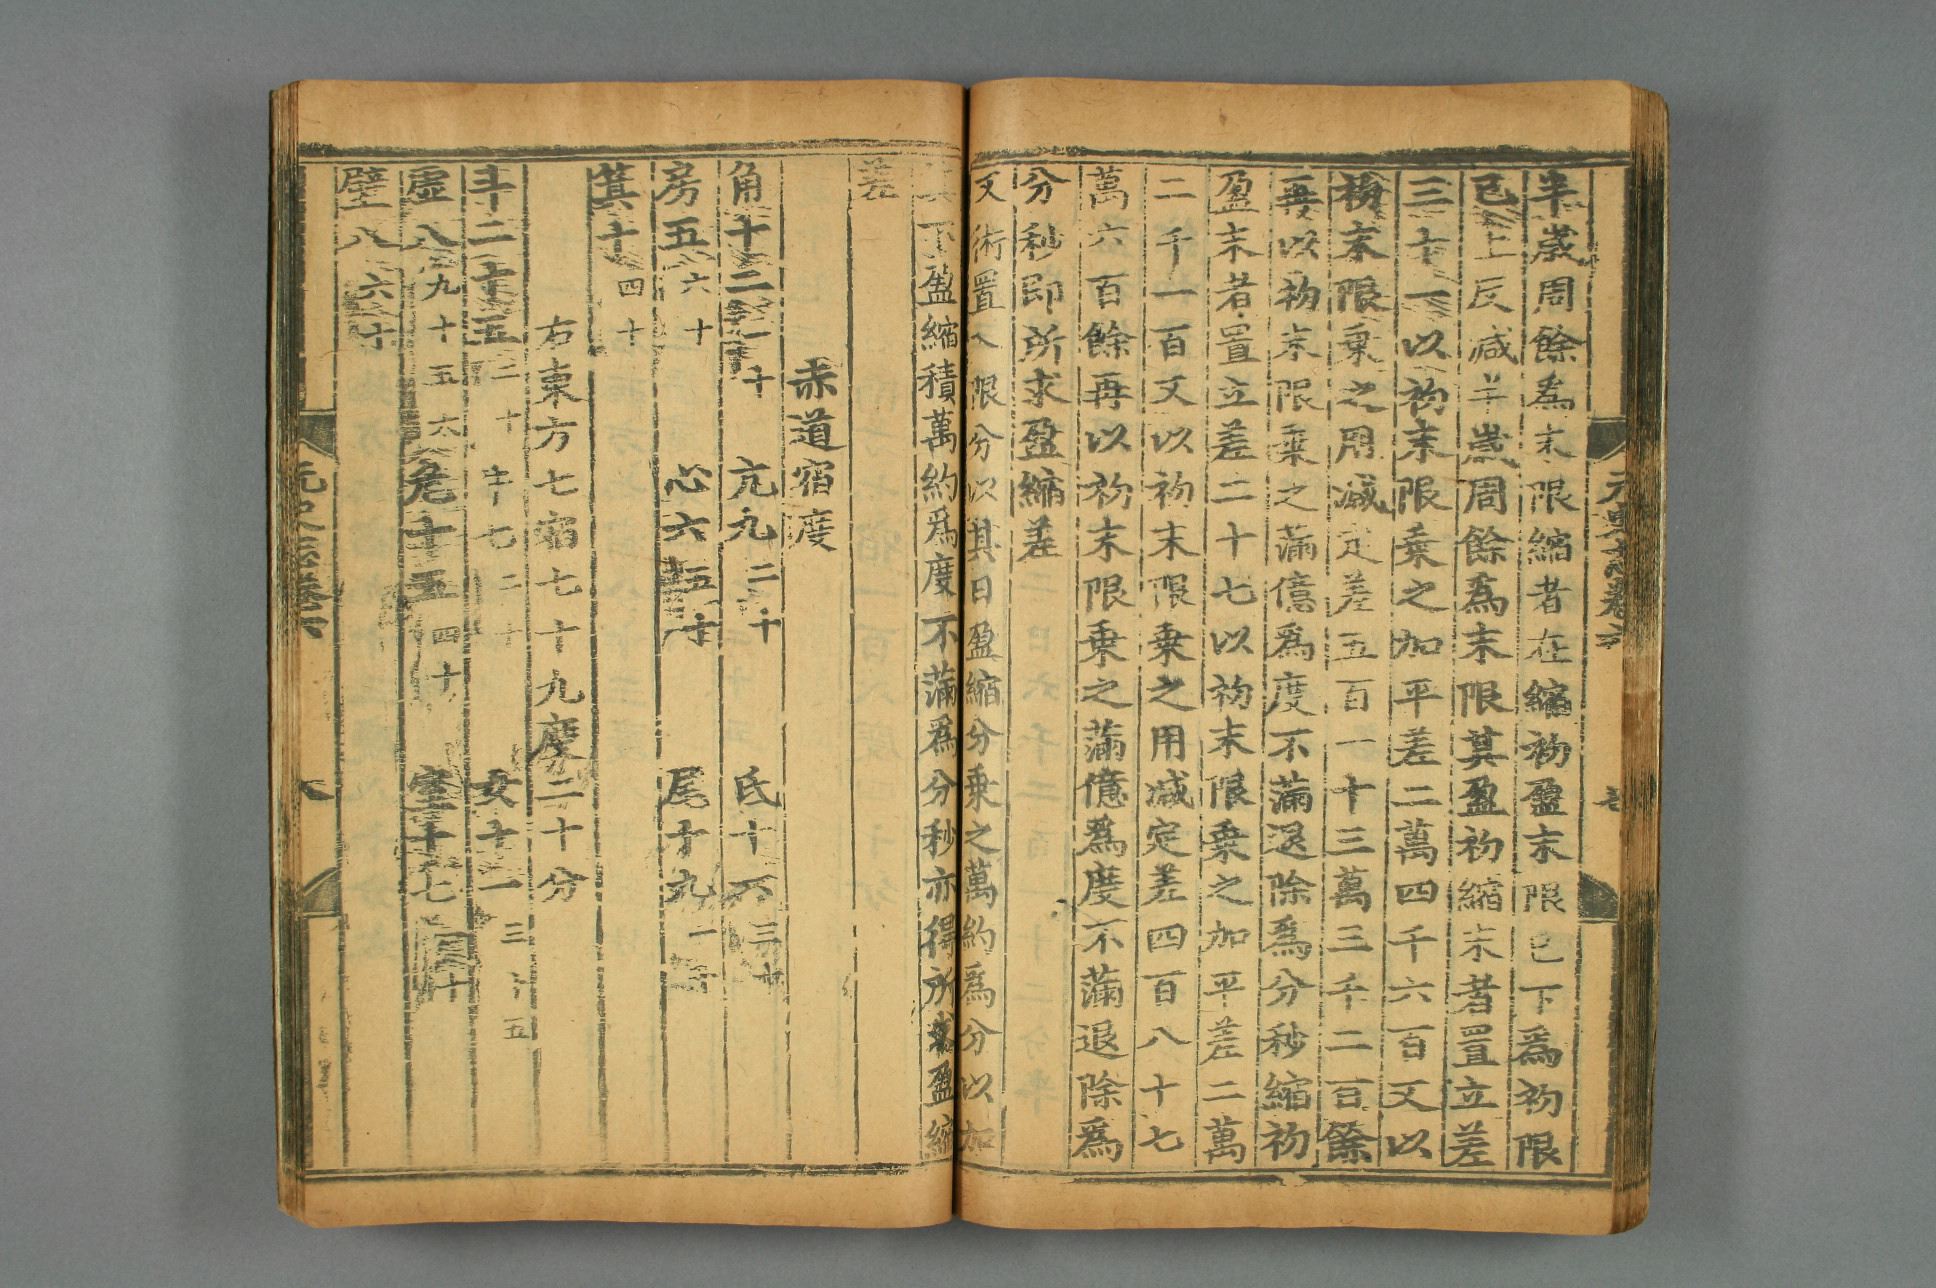 半歲周餘為末限縮者在縮初盈末限已下為初限
已上反減半歲周餘爲末限其盈初縮末者置立差
三十一以初末限乗之加平差二萬四千六百又以
初末限乗之用减定差五百一十三萬三千二百餘
再以初末限乗之滿億爲度不滿退除爲分秒縮初
盈末者置立差二十七以初末限乗之加平差二萬
二千一百又以初末限乗之用减定差四百八十七
萬六百餘再以初末限乗之滿億爲度不滿退除爲
分秒即所求盈縮差
又術置入限分以其日盈縮分乗之萬約爲分以加
其下盈縮積萬約爲度不滿爲分秒亦得所求盈縮
差
赤道宿度
角十二一十 亢九二十 氐十六三十
房五六十 心六五十 尾十九一十
箕十四十
右東方七宿七十九度二十分
斗二十五二十 牛七二十 女十一三十五
虛八九十五六 危十五四十 室十七一十
壁八六十